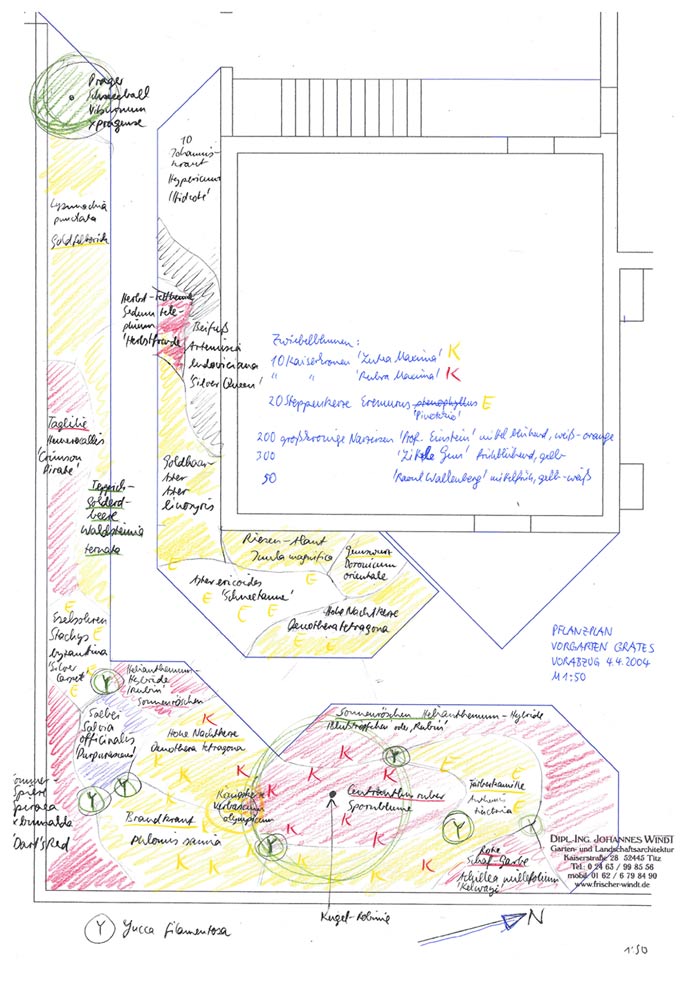 Prager
Schneeball
Viburnum
x pragense
10
Johannis-
kraut
Hypericum
'Hidcote'
Lysimachia
punctata
Goldfelberich
Herbst-Fetthenne
Sedum tele-
phium
'Herbstfreude'
Beifuß
Artemisia
ludoviciana
'Silver Queen'
Zwiebelblumen:
10 Kaiserkronen 'Lutea Maxima' K
" " 'Rubra Maxima' K
20 Steppenkerze Eremurus stenophyllus E
'Pinokkio'
200 großkronige Narzissen 'Prof. Einstein' mittelblühend, weiß-orange
300 frühblühend, gelb
50 'Raoul Wallenberg' mittelfrüh, gelb-weiß
Taglilie
Hemerocallis
'Crimson
Pirate'
Teppich-
Golderd-
beere
Waldsteinia
ternata
Goldhaar-
Aster
Aster
linosyris
Riesen-Alant
Inula magnifica
Gemswurz
Doronicum
orientale
E
Aster ericoides
'Schneetanne'
E E E E E
Hohe Nachtkerze
Oenothera tetragona
E
E
Eselsohren
Stachys E
byzantina
'Silver
Carpet' E
PFLANZPLAN
VORGARTEN GRATES
VORABZUG 4.4.2004
M 1:50
Helianthemum-
Hybride
'Rubin'
Sonnenröschen
Y
Salbei
Salvia
officinalis
'Purpurascens'
K
Hohe Nachtkerze
Oenothera tetragona
K K K
Sonnenröschen Helianthemum-Hybride
'Blutströpfchen' oder 'Rubin'
K K K
Y
Färberkamille
Anthemis
tinctoria
Centranthus ruber
Spornblume
Königskerze
Verbascum
olympicum
Sommer-
spiere
Spiraea
x bumalda
'Dart's Red'
Y Y
Brandkraut
Phlomis samia
Y
Y Y
Rote
Schafgarbe
Achillea millefolium
'Kelwayi'
DIPL.ING. JOHANNES WINDT
Garten- und Landschaftsarchitektur
Kaiserstraße 28 52445 Titz
Tel: 0 24 63 / 99 85 56
mobil: 01 62 / 6 79 84 90
www.frischer-windt.de
Kugel-Robinie
Y Yucca filamentosa
N
1:50